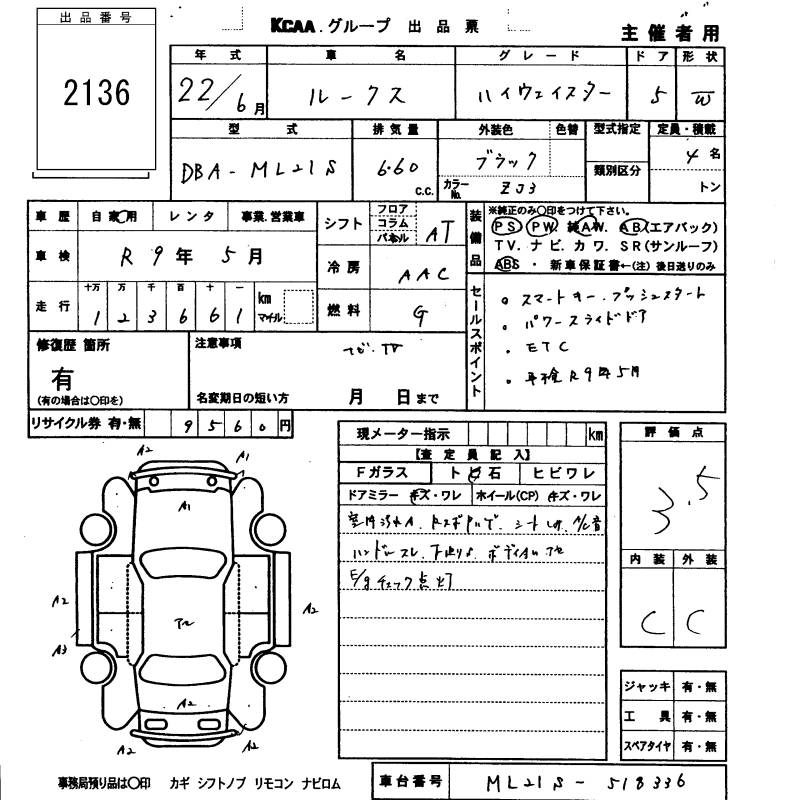 出品番号
2136
KCAA.グループ 出品票
主催者用
年式 車名 グレード ドア 形状
22/6月 ルークス ハイウェイスター 5 W
型式 排気量 外装色 色替 型式指定 定員・積載
DBA-ML21S 660 c.c. ブラック 類別区分 4名
カラーNo. ZJ3 トン
車歴 自家用 レンタ 事業.営業車
車検 R9年5月
走行 十万 万 千 百 十 一 km マイル
123661
シフト フロア コラム パネル AT
冷房 AAC
燃料 G
装備品
※純正のみ〇印をつけて下さい。
PS PW 純AW. AB(エアバック)
TV. ナビ. カワ. SR(サンルーフ)
ABS ・ 新車保証書←(注)後日送りのみ
セールスポイント
。スマートキー.プッシュスタート
。パワースライドドア
。ETC
。車検R9年5月
修復歴 箇所
有
(有の場合は〇印を)
注意事項
ナビ.TV
名変期日の短い方 月 日まで
リサイクル券 有・無 9560円
現メーター指示 km
【査定員記入】
Fガラス ト ビ 石 ヒビワレ
ドアミラー キズ・ワレ ホイール(CP) キズ・ワレ
室内汚れA. シート A/C音
ハンドルスレ. 下廻りS. ボディ
E/gチェック点灯
評価点
3.5
内装 外装
C C
A2 A1
A1
A2 A2
A2
A3
A2
A2 A2
ジャッキ 有・無
工具 有・無
スペアタイヤ 有・無
事務局預り品は〇印 カギ シフトノブ リモコン ナビロム
車台番号 ML21S-518336